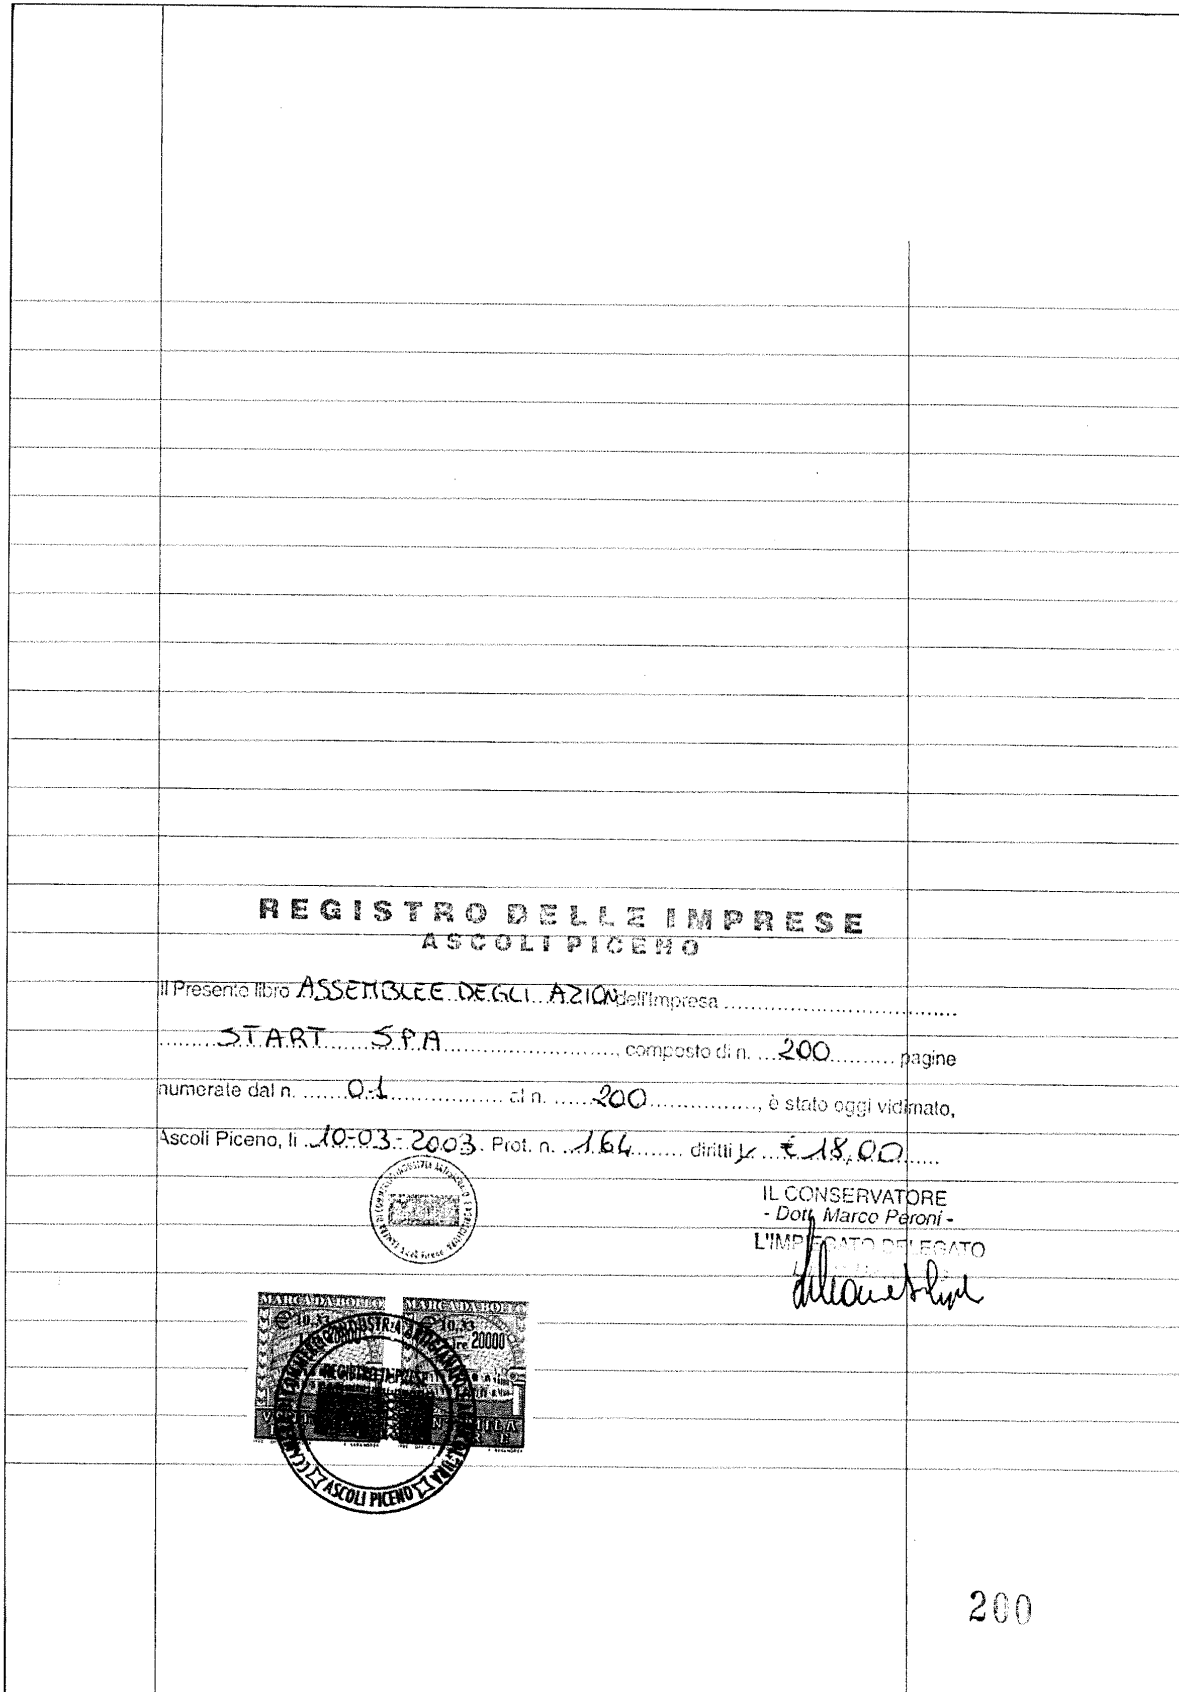 REGISTRO DELLE IMPRESE
ASCOLI PICENO
Il Presente libro ASSEMBLEE DEGLI AZION dell'Impresa ..............................
......... START SPA ......................... composto di n. ... 200 ......... pagine
numerate dal n. ....... 01 ................ al n. ...... 200 ..............., è stato oggi vidimato,
Ascoli Piceno, lì .. 10-03-2003 . Prot. n. .. 164 ........ diritti £ ... € 18,00 ......
IL CONSERVATORE
- Dott. Marco Peroni -
L'IMPIEGATO DELEGATO
MARCA DA BOLLO MARCA DA BOLLO
10,33 10,33
Lire 20000
REGISTRO IMPRESE
ASCOLI PICENO
200